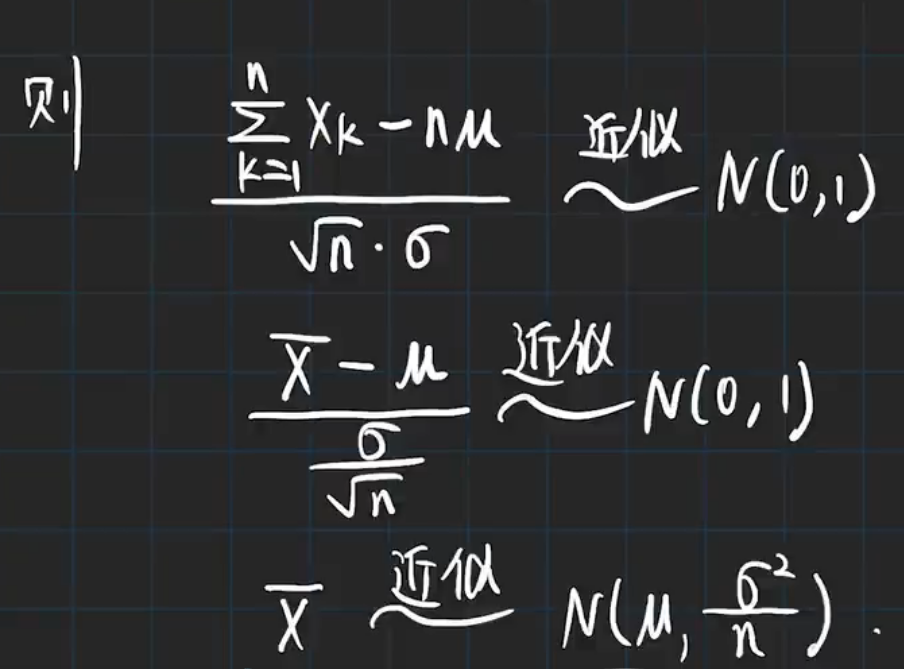 则 \frac{\sum_{k=1}^{n} X_k - n\mu}{\sqrt{n} \cdot \sigma} \overset{近似}{\sim} N(0,1)
\frac{\overline{X} - \mu}{\frac{\sigma}{\sqrt{n}}} \overset{近似}{\sim} N(0,1)
\overline{X} \overset{近似}{\sim} N(\mu, \frac{\sigma^2}{n}).